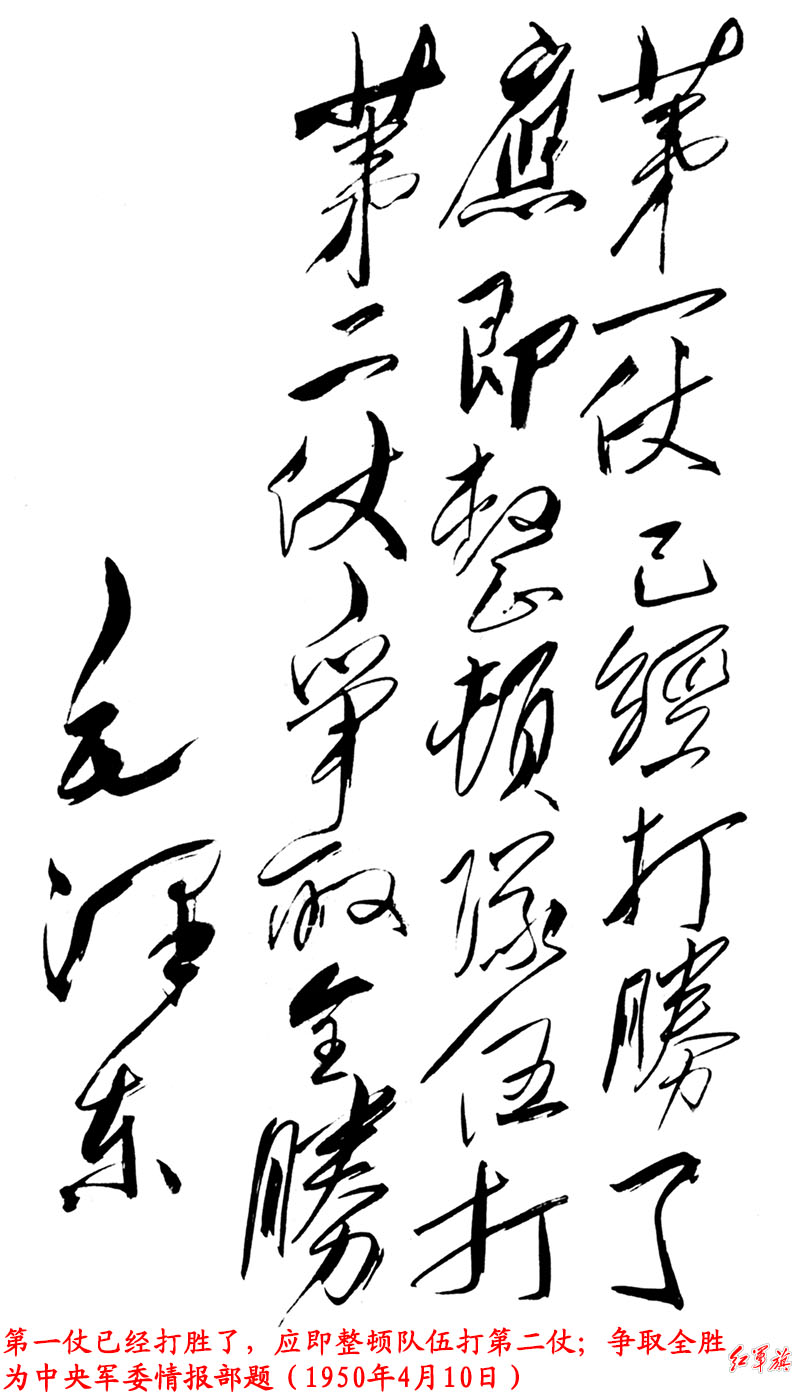 第一仗已經打勝了
應即整頓隊伍打
第二仗、爭取全勝
毛澤东
第一仗已经打胜了，应即整顿队伍打第二仗；争取全胜
为中央军委情报部题（1950年4月10日）
红军旗